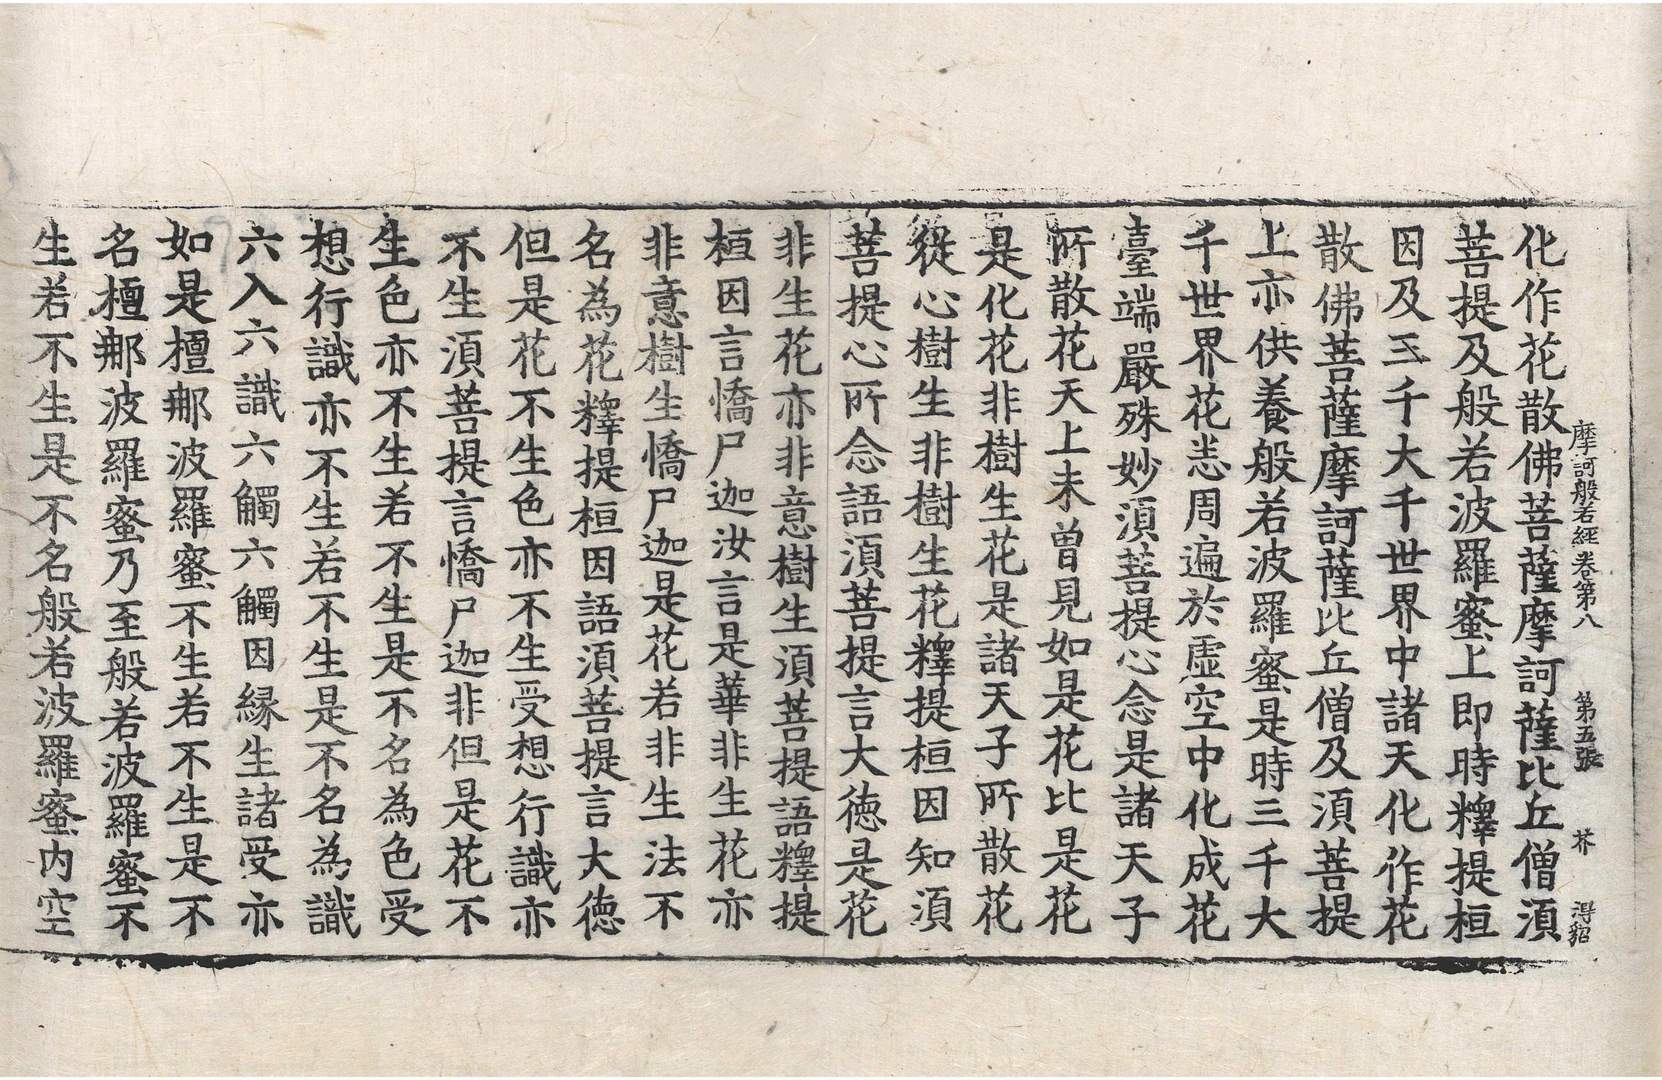 摩訶般若經卷第八 第五張 芥 淂貂
化作花散佛菩薩摩訶薩比丘僧湏
菩提及般若波羅蜜上即時釋提桓
因及三千大千世界中諸天化作花
散佛菩薩摩訶薩比丘僧及湏菩提
上亦供養般若波羅蜜是時三千大
千世界花悉周遍於虛空中化成花
臺端嚴殊妙湏菩提心念是諸天子
所散花天上未曾見如是花比是花
是化花非樹生花是諸天子所散花
從心樹生非樹生花釋提桓因知湏
菩提心所念語湏菩提言大徳是花
非生花亦非意樹生湏菩提語釋提
桓因言憍尸迦汝言是華非生花亦
非意樹生憍尸迦是花若非生法不
名為花釋提桓因語湏菩提言大徳
但是花不生色亦不生受想行識亦
不生湏菩提言憍尸迦非但是花不
生色亦不生若不生是不名為色受
想行識亦不生若不生是不名為識
六入六識六觸六觸因縁生諸受亦
如是檀那波羅蜜不生若不生是不
名檀那波羅蜜乃至般若波羅蜜不
生若不生是不名般若波羅蜜内空